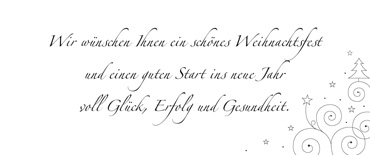 Wir wünschen Ihnen ein schönes Weihnachtsfest
und einen guten Start ins neue Jahr
voll Glück, Erfolg und Gesundheit.